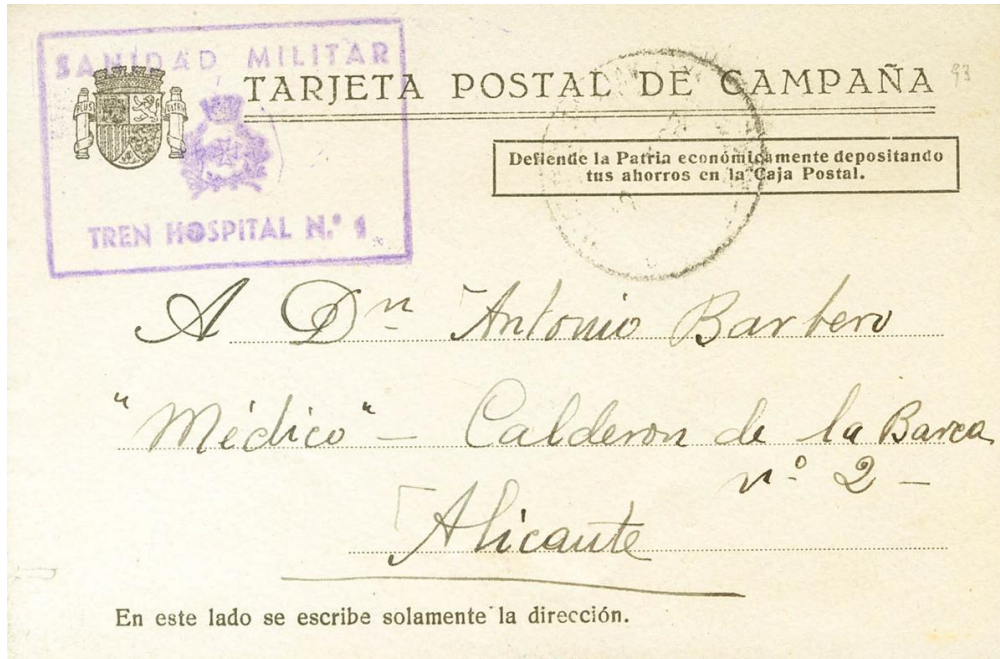 SANIDAD MILITAR
TARJETA POSTAL DE CAMPAÑA
93
PLUS ULTRA
Defiende la Patria económicamente depositando
tus ahorros en la Caja Postal.
TREN HOSPITAL N.º 1
A Dn Antonio Barbero
"Médico" - Calderon de la Barca
nº 2 -
Alicante
En este lado se escribe solamente la dirección.